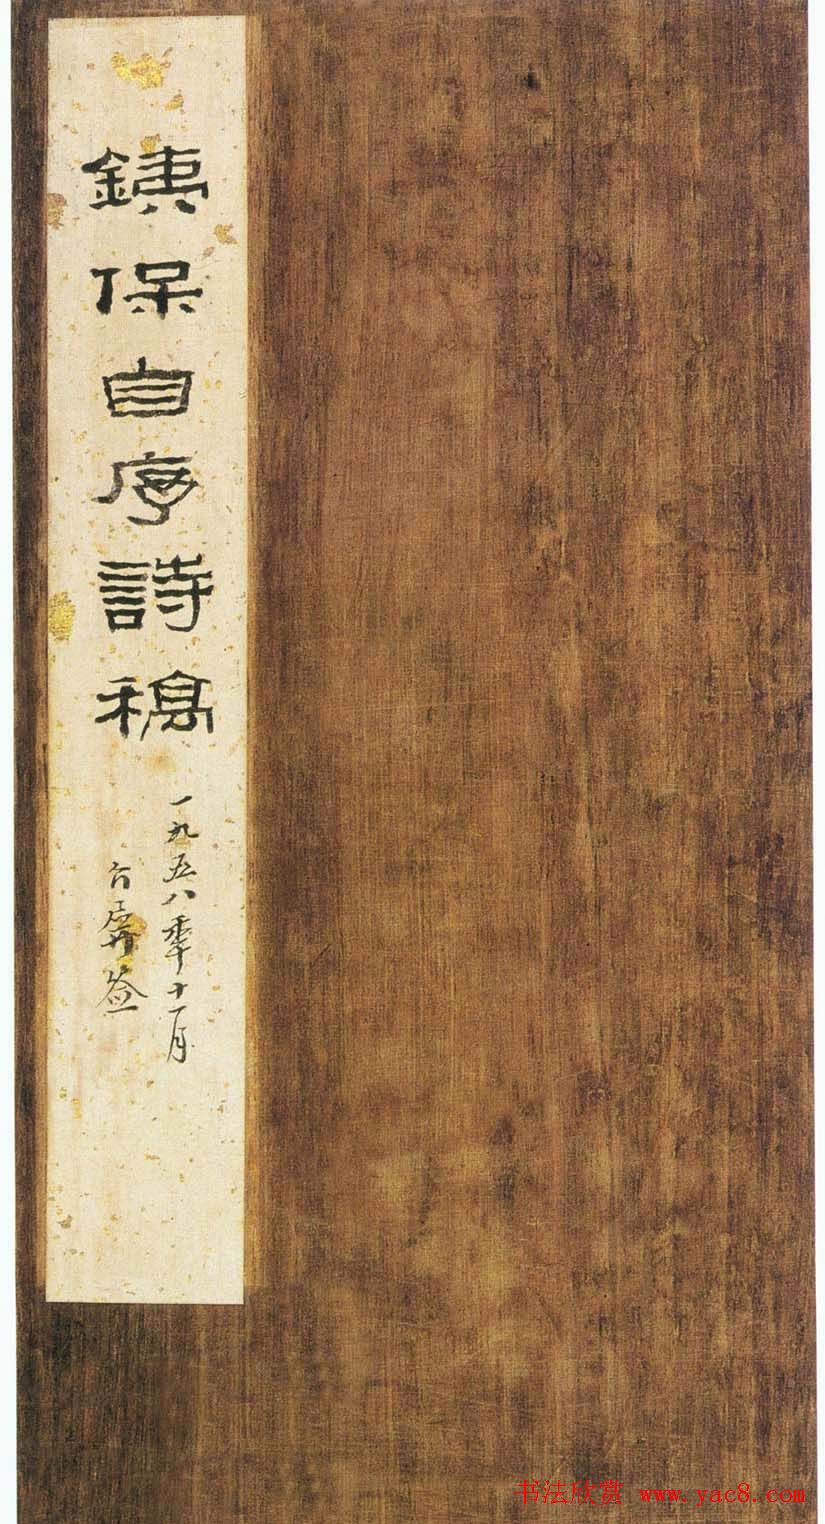 銕保自序詩稿
一九五八年十一月
签
书法欣赏 www.yac8.com